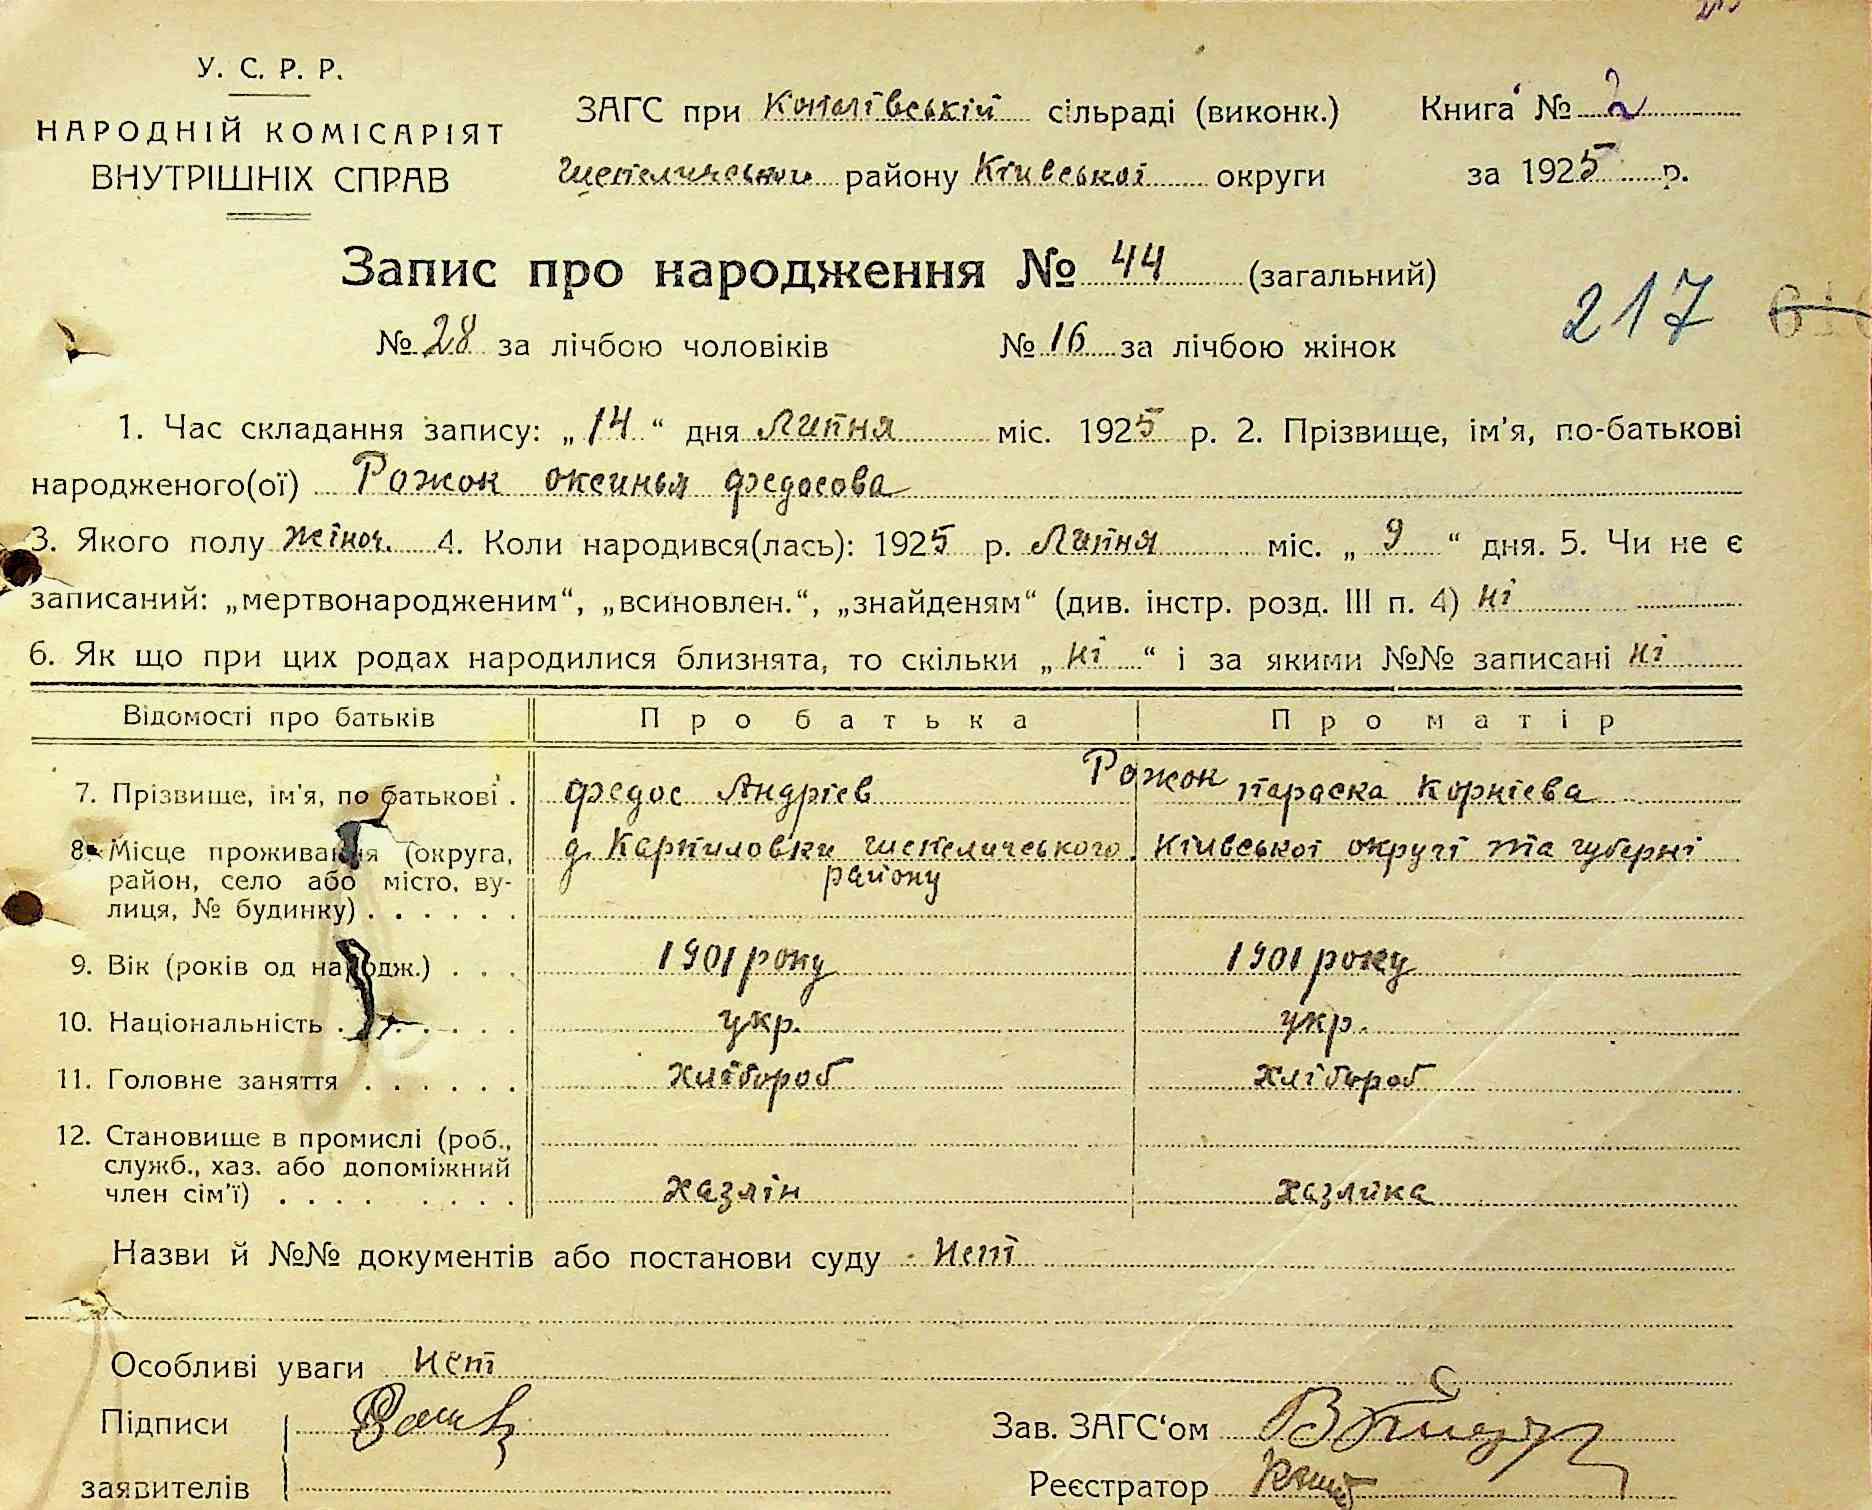 У. С. Р. Р.
НАРОДНІЙ КОМІСАРІЯТ
ВНУТРІШНІХ СПРАВ
ЗАГС при Копачівській сільраді (виконк.)
Шепеличського району Київської округи
Книга № 2
за 1925 р.
Запис про народження № 44 (загальний)
217
№ 28 за лічбою чоловіків № 16 за лічбою жінок
1. Час складання запису: „14“ дня Липня міс. 1925 р. 2. Прізвище, ім'я, по-батькові
народженого(ої) Рожок оксинья федосова
3. Якого полу жіноч. 4. Коли народився(лась): 1925 р. Липня міс. „9“ дня. 5. Чи не є
записаний: „мертвонародженим“, „всиновлен.“, „знайденям“ (див. інстр. розд. III п. 4) ні
6. Як що при цих родах народилися близнята, то скільки „ні“ і за якими №№ записані ні
Відомості про батьків Про батька Про матір
7. Прізвище, ім'я, по батькові . федос Андрієв Рожок параска Корнієва
8. Місце проживання (округа, район, село або місто, вулиця, № будинку) . . . . . . д. Карпиловки шепеличського району Київської округі та губерні
9. Вік (років од народж.) . . . 1901 року 1901 року
10. Національність . . . . . . укр. укр.
11. Головне заняття . . . . . . хлібороб хлібороб
12. Становище в промислі (роб., служб., хаз. або допоміжний член сім'ї) . . . . . . . . . хазяін хазяйка
Назви й №№ документів або постанови суду Нет
Особливі уваги Нет
Підписи
заявителів
Зав. ЗАГС‘ом
Реєстратор